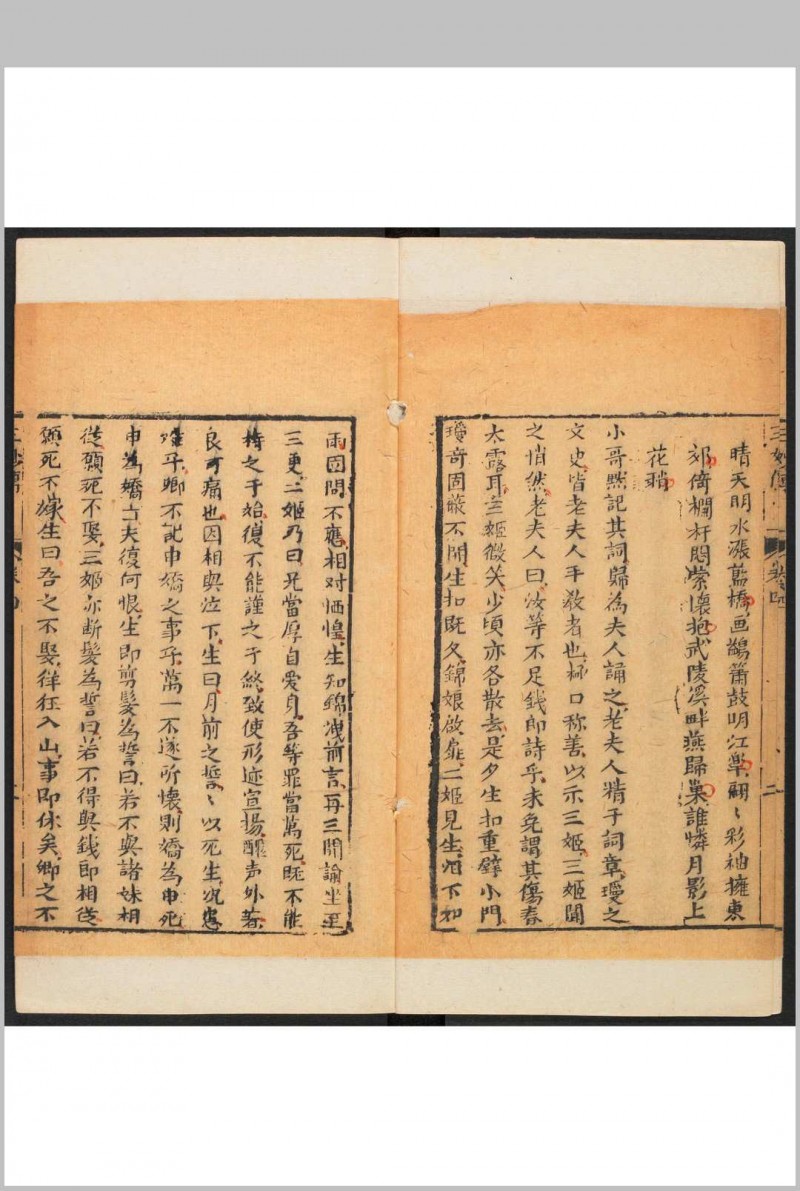 三妙傳
卷四
二
晴天明水漲藍橋画鷁簫鼓明江臯翩〻彩袖擁東
郊倚欄杆悶縈懷抱武陵溪畔燕歸巢誰憐月影上
花稍
小哥熟記其詞歸為夫人誦之老夫人精于詞章瓊之
文史皆老夫人手教者也極口称善以示三姬三姬聞
之悄然老夫人曰汝等不足錢郎詩乎未免謂其傷春
太露耳三姬微笑少頃亦各散去是夕生扣重壁小門
瓊奇固蔽不開生扣既久錦娘啟扉二姬見生淚下如
雨固問不應相对恓惶生知錦洩前言再三開諭坐至
三更二姬乃曰兄當厚自愛身吾等罪當萬死既不能
持之于始復不能謹之于終致使形迹宣揚醜声外著
良可痛也因相與泣下生曰月前之誓〻以死生况患
难乎卿不記申嬌之事乎萬一不遂所懷則嬌為申死
申為嬌亡夫復何恨生即剪髮為誓曰若不與諸妹相
從願死不娶三姬亦断髮為誓曰若不得與錢郎相從
願死不嫁生曰吾之不娶徉狂入山事即休矣卿之不